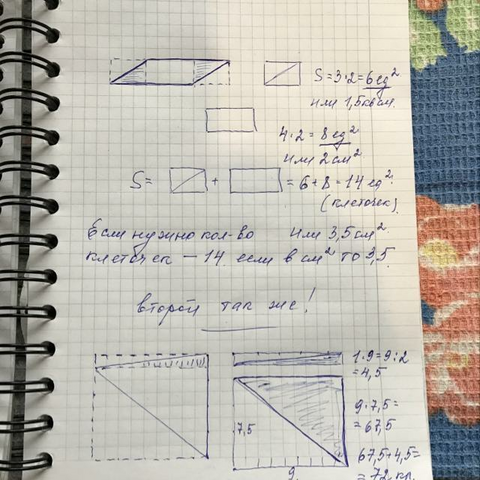 S = 3·2 = 6 ед²
или 1,5 кв см.
4·2 = 8 ед²
или 2 см²
S = + = 6 + 8 = 14 ед²
(клеточек)
Если нужно кол-во или 3,5 см²
клеточек — 14 если в см² то 3,5.
второй так же!
1·9 = 9 : 2
= 4,5
9·7,5 =
= 67,5
7,5
67,5 + 4,5 =
= 72 кл.
9